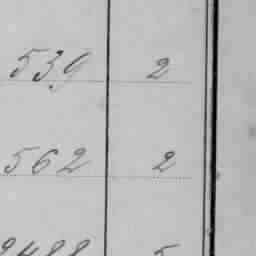 539 2
562 2